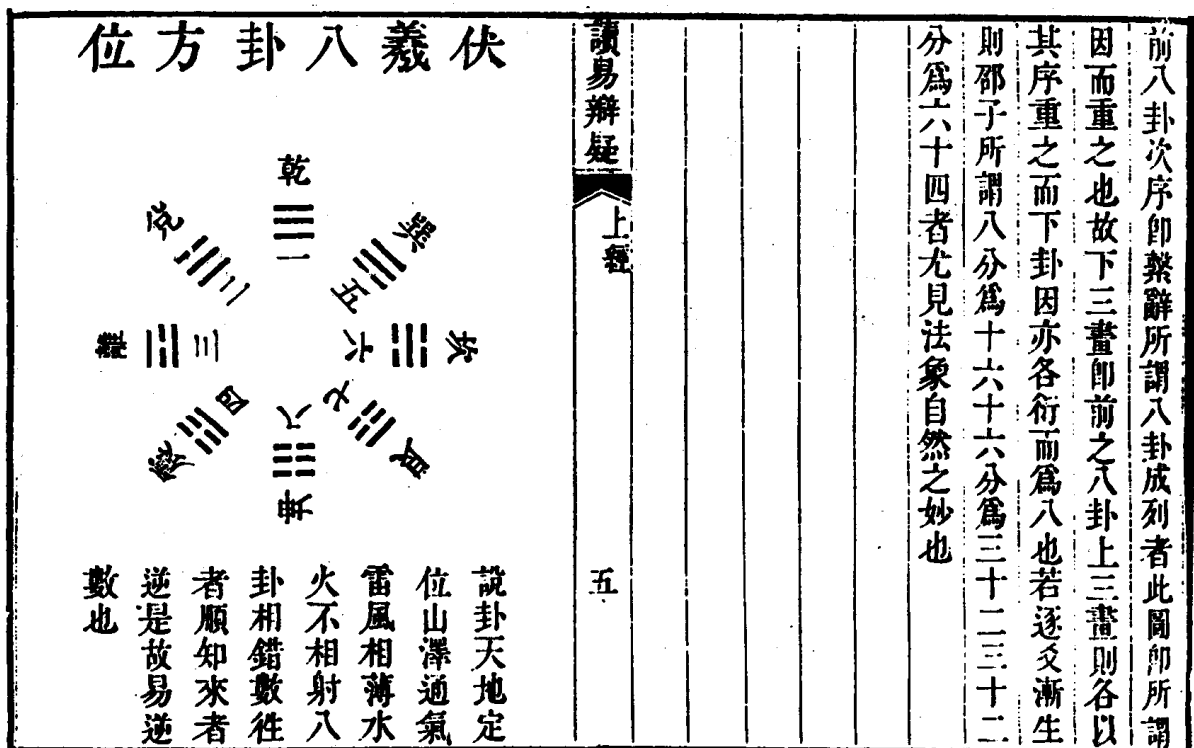 前八卦次序卽繫辭所謂八卦成列者此圖卽所謂
因而重之也故下三畫卽前之八卦上三畫則各以
其序重之而下卦因亦各衍而爲八也若逐爻漸生
則邵子所謂八分爲十六十六分爲三十二三十二
分爲六十四者尤見法象自然之妙也
讀易辯疑
上經
五
伏羲八卦方位
乾
一
兌
二
離
三
震
四
巽
五
坎
六
艮
七
坤
八
說卦天地定
位山澤通氣
雷風相薄水
火不相射八
卦相錯數徃
者順知來者
逆是故易逆
數也